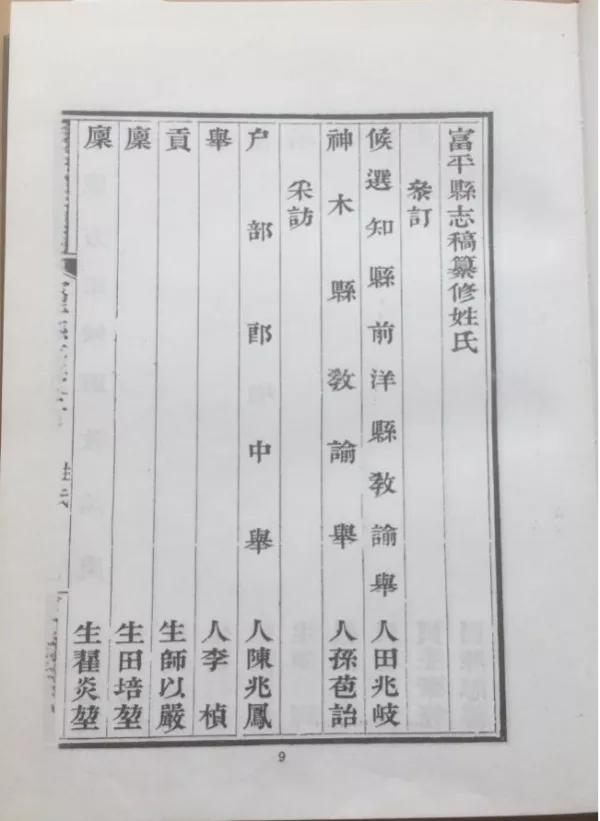 富平縣志稿纂修姓氏
叅訂
候選知縣前洋縣敎諭舉人田兆岐
神木縣敎諭舉人孫苞詒
采訪
户部郎中舉人陳兆鳳
舉人李楨
貢生師以嚴
廩生田培堃
廩生翟炎堃
姓氏
9